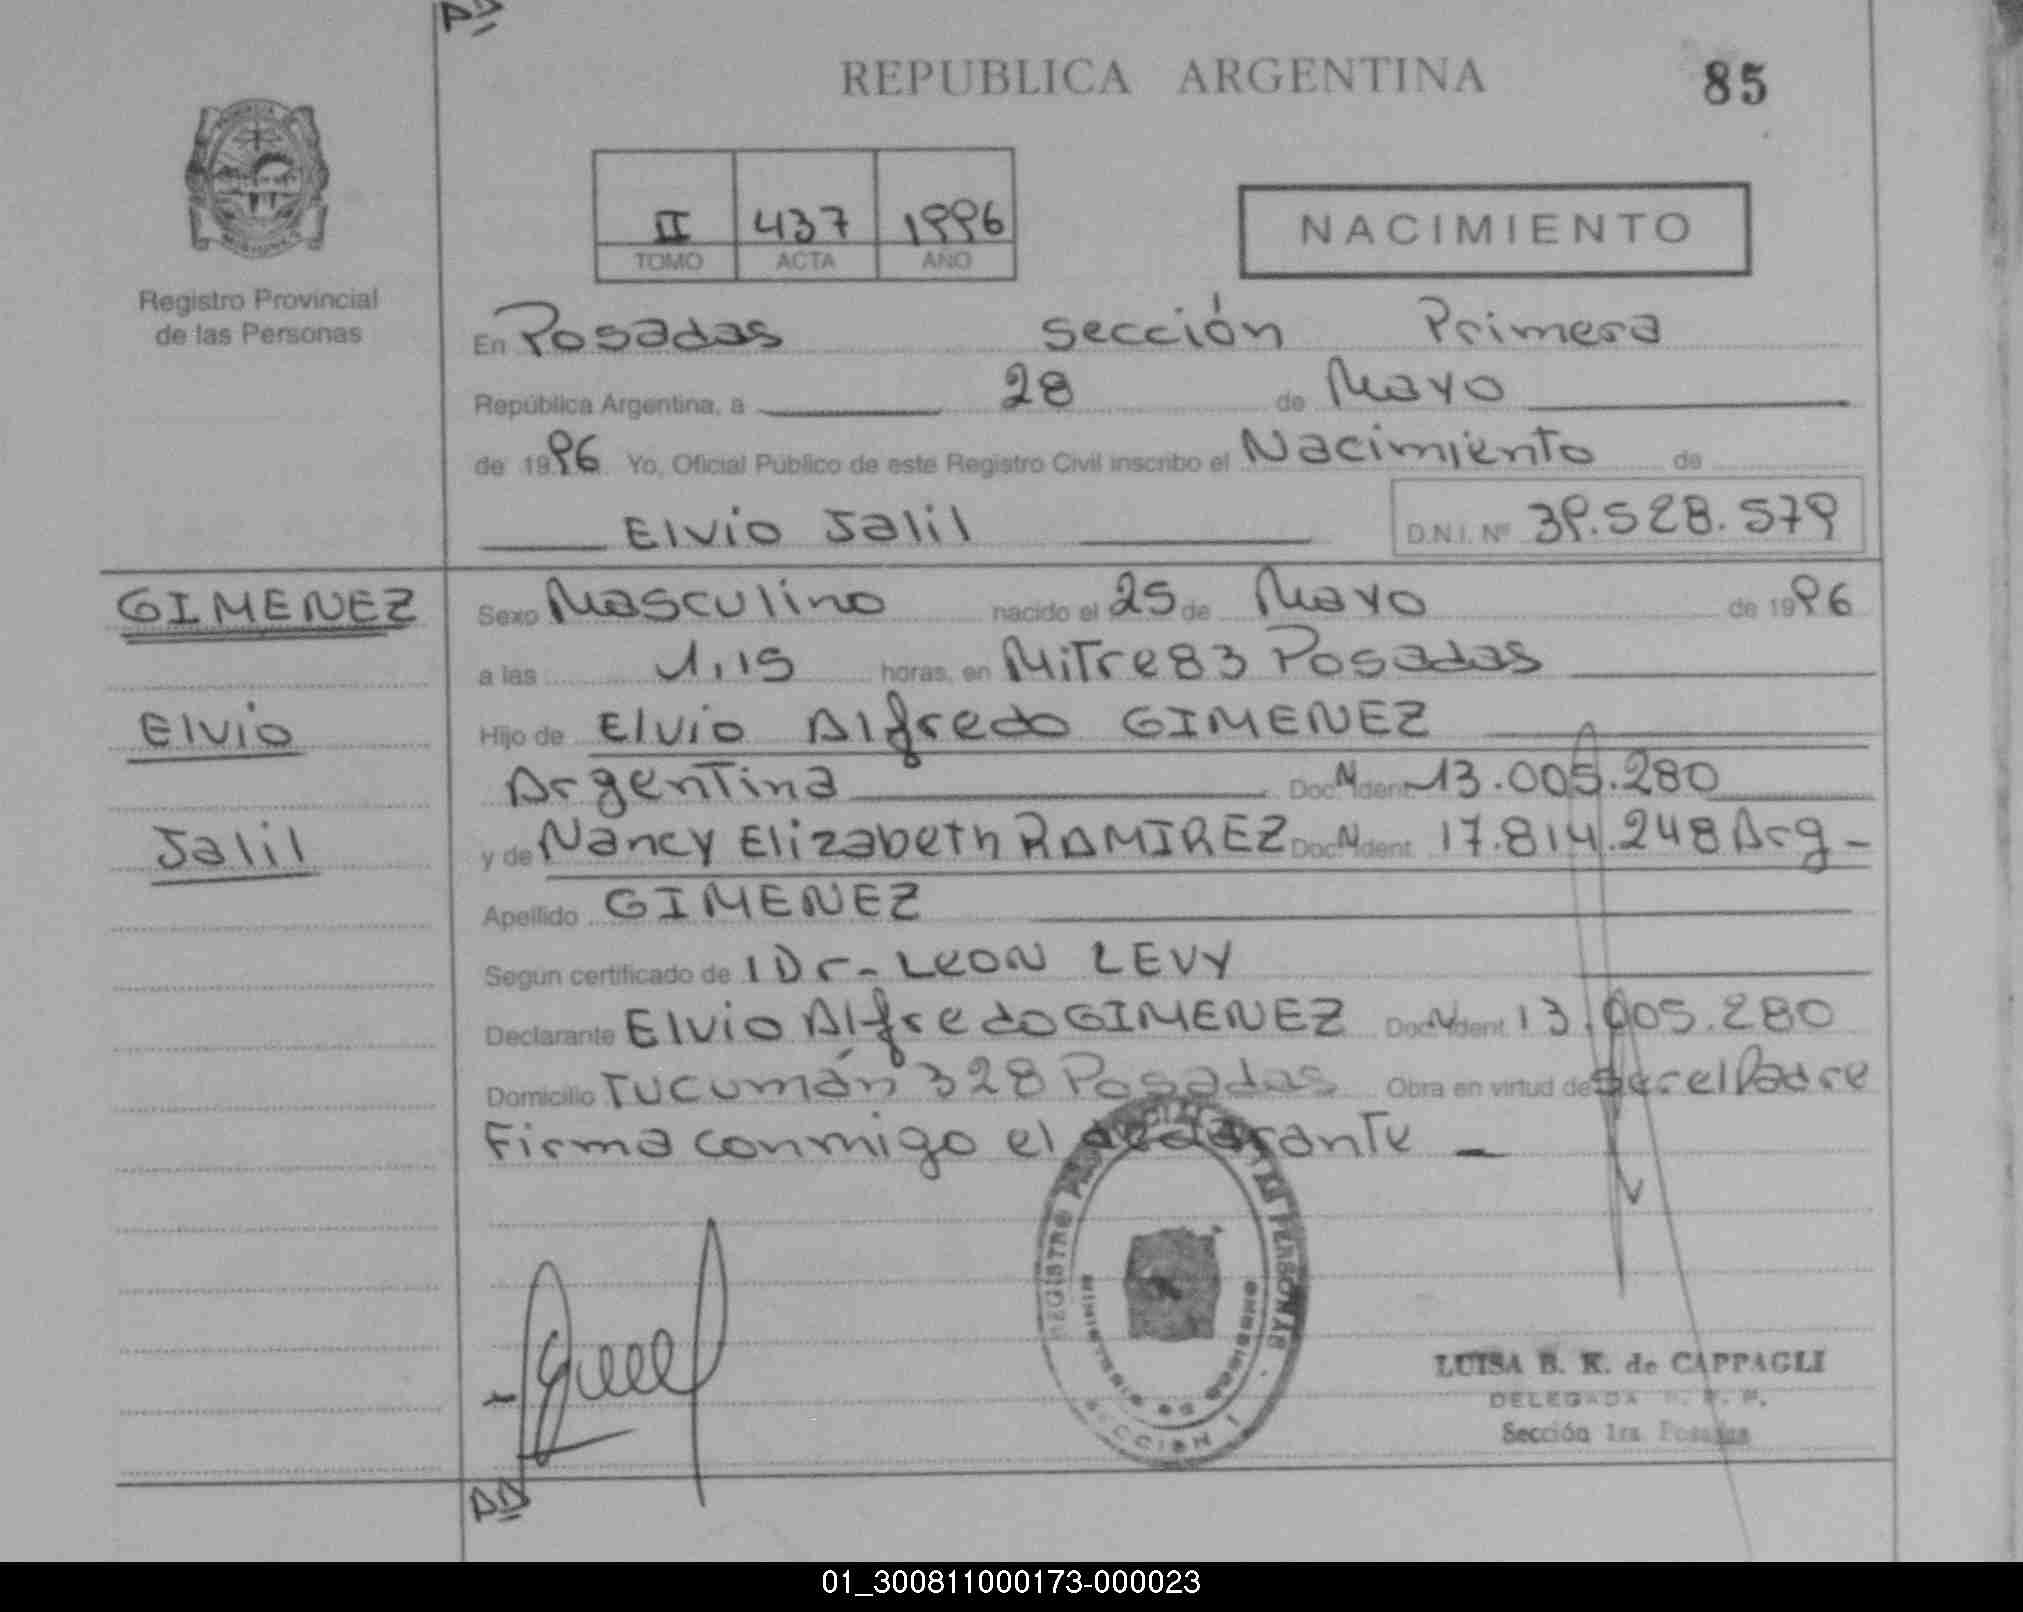 REPUBLICA ARGENTINA
85
II 437 1996
TOMO ACTA AÑO
NACIMIENTO
Registro Provincial
de las Personas
En Posadas Sección Primera
República Argentina, a 28 de Mayo
de 1996 Yo, Oficial Público de este Registro Civil inscribo el Nacimiento de
Elvio Jalil D.N.I. Nº 39.528.579
GIMENEZ
Elvio
Jalil
Sexo Masculino nacido el 25 de Mayo de 1996
a las 1,15 horas, en Mitre 83 Posadas
Hijo de Elvio Alfredo GIMENEZ
Argentina Doc. Ident. 13.005.280
y de Nancy Elizabeth RAMIREZ Doc. Ident. 17.814.248 Arg-
Apellido GIMENEZ
Según certificado de Dr- LEON LEVY
Declarante Elvio Alfredo GIMENEZ Doc. Ident. 13.005.280
Domicilio Tucumán 328 Posadas Obra en virtud de ser el Padre
Firma conmigo el declarante -
LUISA B. K. de CAPPAGLI
DELEGADA
Sección 1ra. Posadas
01_300811000173-000023